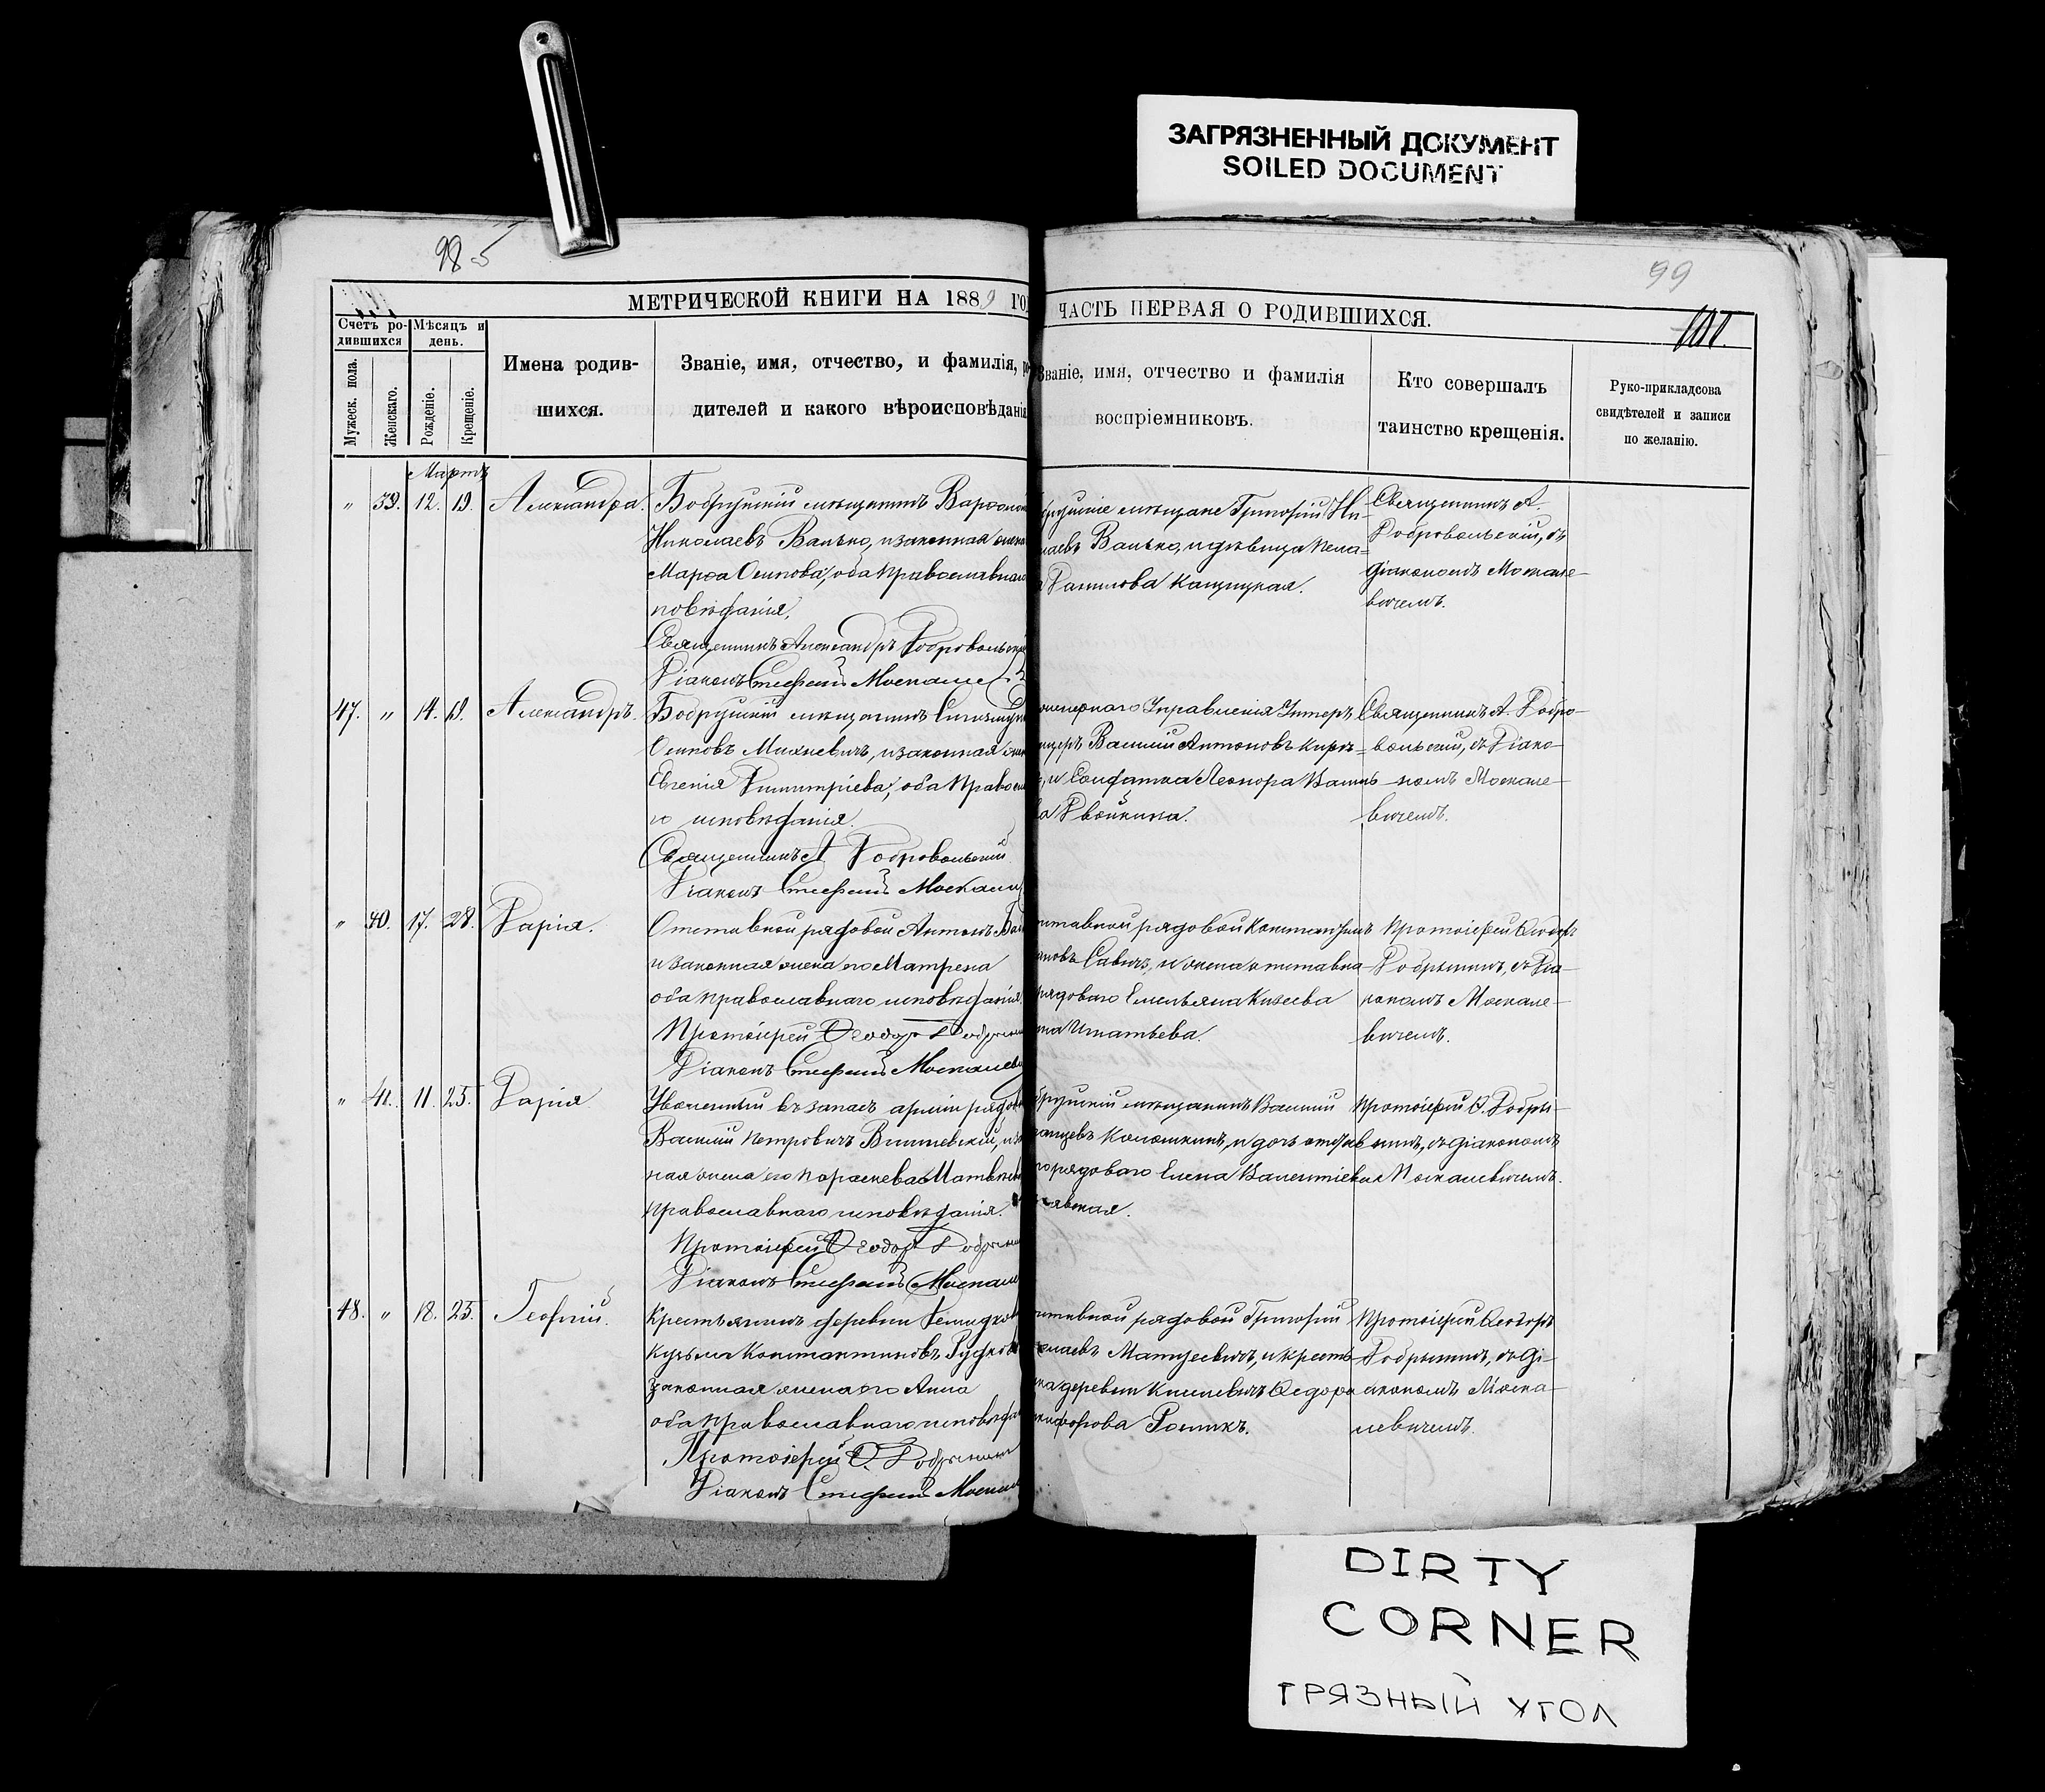 ЗАГРЯЗНЕННЫЙ ДОКУМЕНТ
SOILED DOCUMENT
98
99
МЕТРИЧЕСКОЙ КНИГИ НА 1889 ГО
ЧАСТЬ ПЕРВАЯ О РОДИВШИХСЯ.
101.
Счетъ ро-
дившихся
Мужеск. пола.
Женскаго.
Мѣсяцъ и
день.
Рожденіе.
Крещеніе.
Имена родив-
шихся.
Званіе, имя, отчество, и фамилія, ро
дителей и какого вѣроисповѣданія
Званіе, имя, отчество и фамилія
воспріемниковъ.
Кто совершалъ
таинство крещенія.
Руко-прикладсова
свидѣтелей и записи
по желанію.
Мартъ
" 39. 12. 19. Александра.
Бобруйскій мѣщанинъ
Николаевъ Ванько, и законная жена
Марѳа Осипова, оба православнаго
повѣданія.
Священникъ Александръ Добровольскій
Діаконъ Стефанъ Москале
мѣщане Григорій Ни-
лаевъ Ванько, и дѣвица Пела-
Данилова
Священникъ А.
Добровольскій, съ
діакономъ Москале-
вичемъ.
47. " 14. 19. Александръ.
Бобруйскій мѣщанинъ
Осиповъ Михневичъ, и законная жена
Евгенія Димитріева, оба православ
го исповѣданія.
Священникъ А Добровольскій
Діаконъ Стефанъ Москалев
Управленія Унтеръ
Василій Антоновъ
и Солдатка Леонора
Двойнина.
Священникъ А. Добро-
вольскій, съ Діако-
номъ Москале-
вичемъ.
" 40. 17. 28. Дарія.
Отставной рядовой Антонъ
и законная жена его Матрена
оба православнаго исповѣданія
Протоіерей Ѳеодоръ Добрынин
Діаконъ Стефанъ Москалев
ставной рядовой Константинъ
Савичъ, и жена отставна-
рядоваго Емельяна Кизеева
Игнатьева.
Протоіерей Ѳеодоръ
Добрынинъ, съ Діа-
кономъ Москале-
вичемъ.
" 41. 11. 25. Дарія.
Уволенный въ запасъ арміи рядовой
Василій Петровичъ Вишневскій, и за
ная жена его Параскева Матвѣев
православнаго исповѣданія.
Протоіерей Ѳеодоръ Добрынин
Діаконъ Стефанъ Москале
бруйскій мѣщанинъ Василій
Калошкинъ, и дочь отстав
го рядоваго Елена Валентіева
Протоіерей Ѳ. Добры-
нинъ, съ діакономъ
Москалевичемъ.
48. " 18. 25. Георгій.
Крестьянинъ деревни
Кузьма Константиновъ
законная жена его Анна
оба православнаго исповѣда
Протоіерей Ѳ. Добрынин
Діаконъ Стефанъ Москалев
ставной рядовой Григорій
Матусевичъ, и крестья-
ка деревни Киселевичъ Ѳедора
кифорова
Протоіерей Ѳеодоръ
Добрынинъ, съ Ді-
акономъ Моска-
левичемъ.
DIRTY
CORNER
ГРЯЗНЫЙ УГОЛ